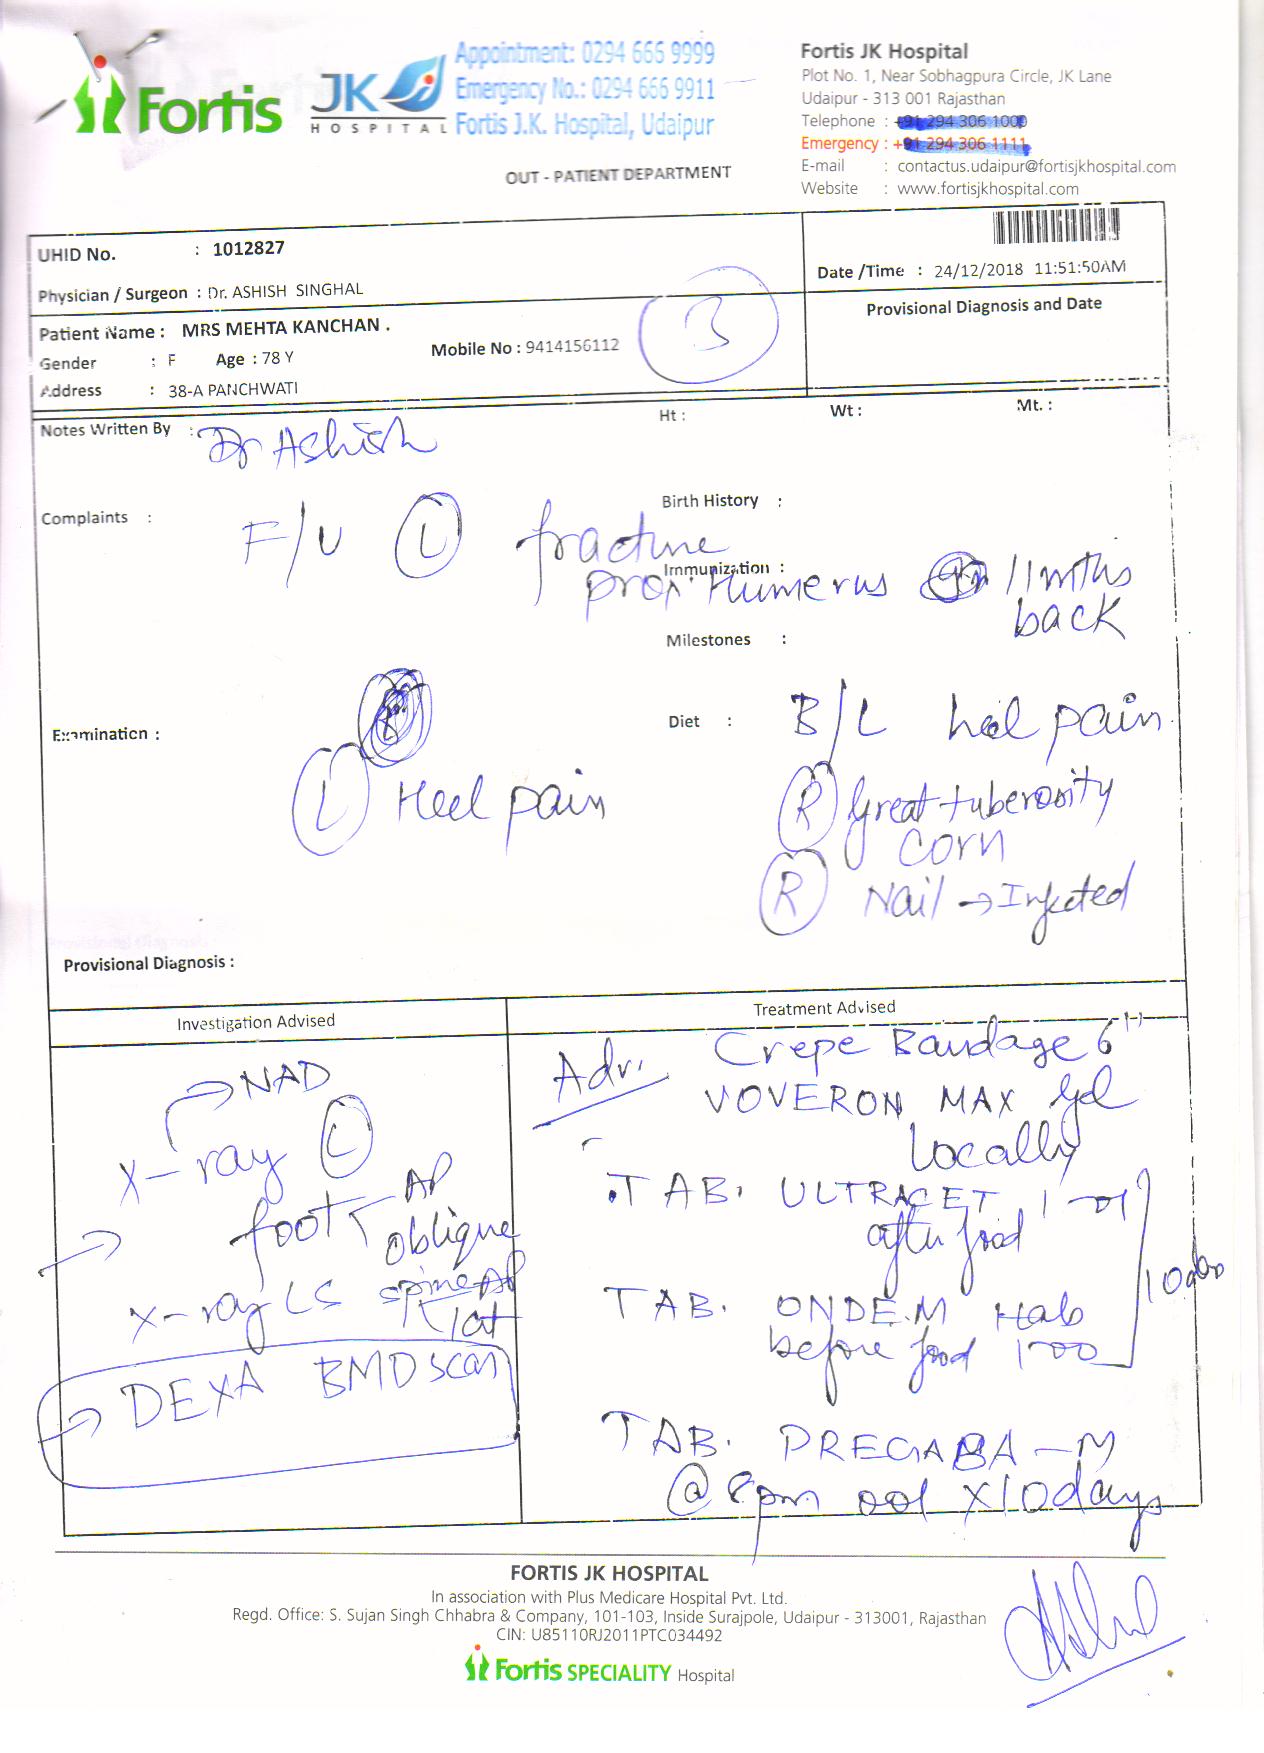 Fortis
JK
HOSPITAL
Appointment: 0294 666 9999
Emergency No.: 0294 666 9911
Fortis J.K. Hospital, Udaipur
OUT - PATIENT DEPARTMENT
Fortis JK Hospital
Plot No. 1, Near Sobhagpura Circle, JK Lane
Udaipur - 313 001 Rajasthan
Telephone : +91 294 306 1000
Emergency : +91 294 306 1111
E-mail : contactus.udaipur@fortisjkhospital.com
Website : www.fortisjkhospital.com
UHID No. : 1012827
Physician / Surgeon : Dr. ASHISH SINGHAL
Date /Time : 24/12/2018 11:51:50AM
Provisional Diagnosis and Date
Patient Name : MRS MEHTA KANCHAN .
Gender : F Age : 78 Y
Mobile No : 9414156112
Address : 38-A PANCHWATI
3
Notes Written By : Dr Ashish
Ht :
Wt :
Mt. :
Complaints :
Birth History :
F/U (L) fracture
Immunization :
prox. Humerus 11 mths
back
Milestones :
Examination :
Diet :
B/L heel pain
(L) Heel pain
(R) great tuberosity
corn
(R) Nail → Injected
Provisional Diagnosis :
Investigation Advised
Treatment Advised
NAD
X-ray (L)
foot AP
oblique
X-ray LS spine AP
lat
DEXA BMD scan
Adv. Crepe Bandage 6"
VOVERON MAX gel
locally
TAB. ULTRACET
after food
TAB. ONDEM
before food
TAB. PREGABA-M
@ 8pm 001 X10days
FORTIS JK HOSPITAL
In association with Plus Medicare Hospital Pvt. Ltd.
Regd. Office: S. Sujan Singh Chhabra & Company, 101-103, Inside Surajpole, Udaipur - 313001, Rajasthan
CIN: U85110RJ2011PTC034492
Fortis SPECIALITY Hospital